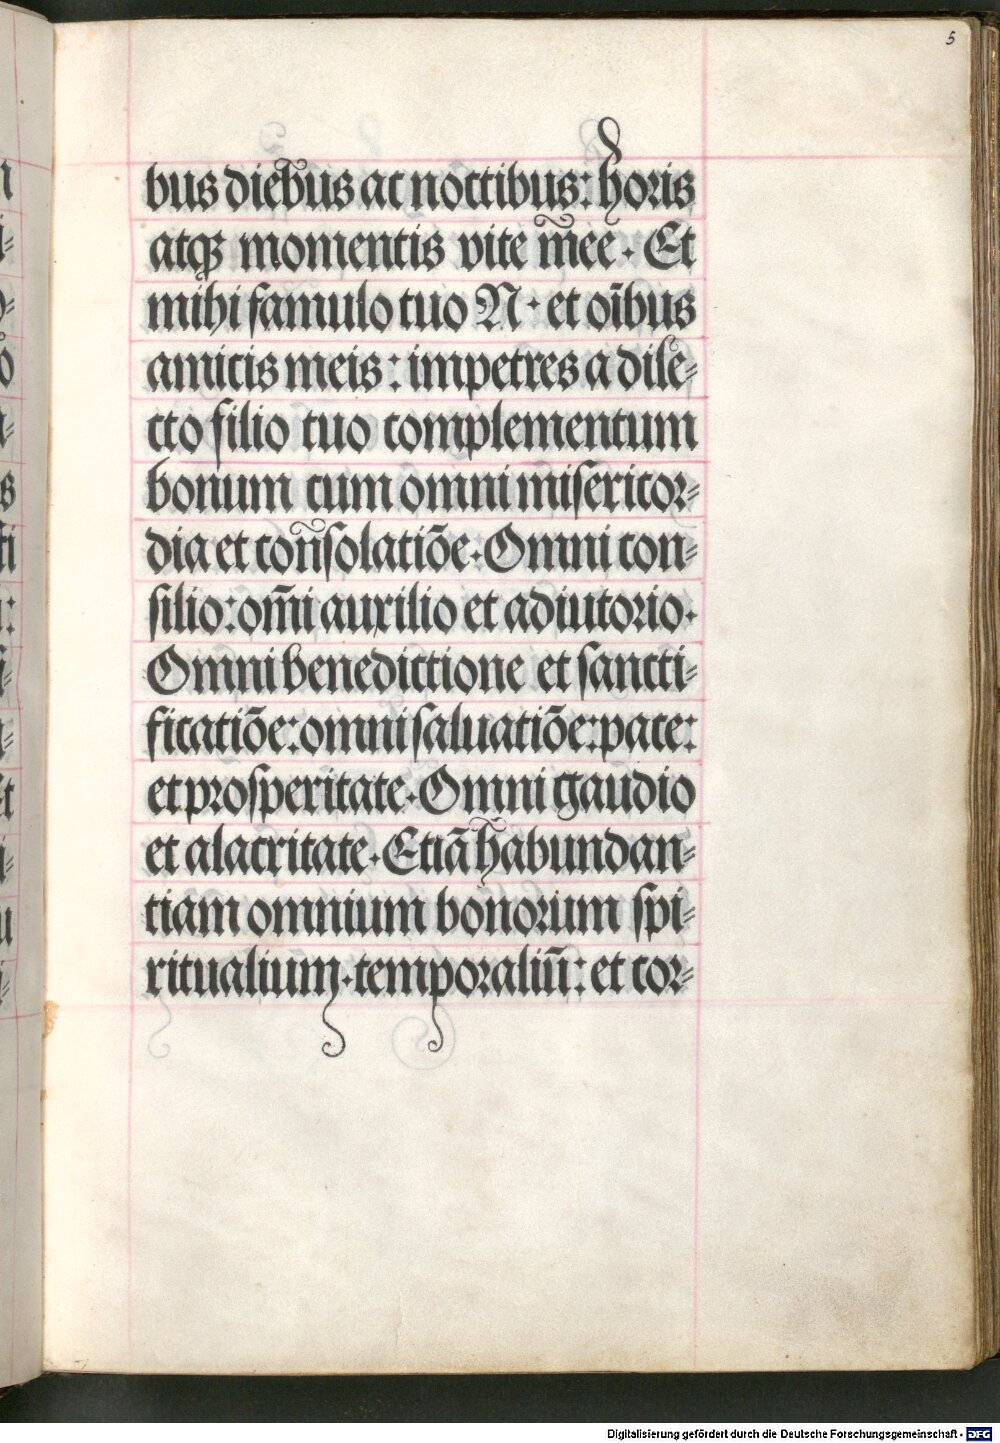 5
bus diebus ac noctibus: horis
atqꝫ momentis vite mee · Et
mihi famulo tuo N · et oı̄bus
amicis meis: impetres a dile-
cto filio tuo complementum
bonum cum omni misericor-
dia et consolatiōe · Omni con-
silio: om̄i auxilio et adiutorio ·
Omni benedictione et sancti-
ficatiōe: omni saluatiōe: pace:
et prosperitate · Omni gaudio
et alacritate · Etiā habundan-
tiam omnium bonorum spi-
ritualium · temporaliū: et cor-
Digitalisierung gefördert durch die Deutsche Forschungsgemeinschaft - DFG